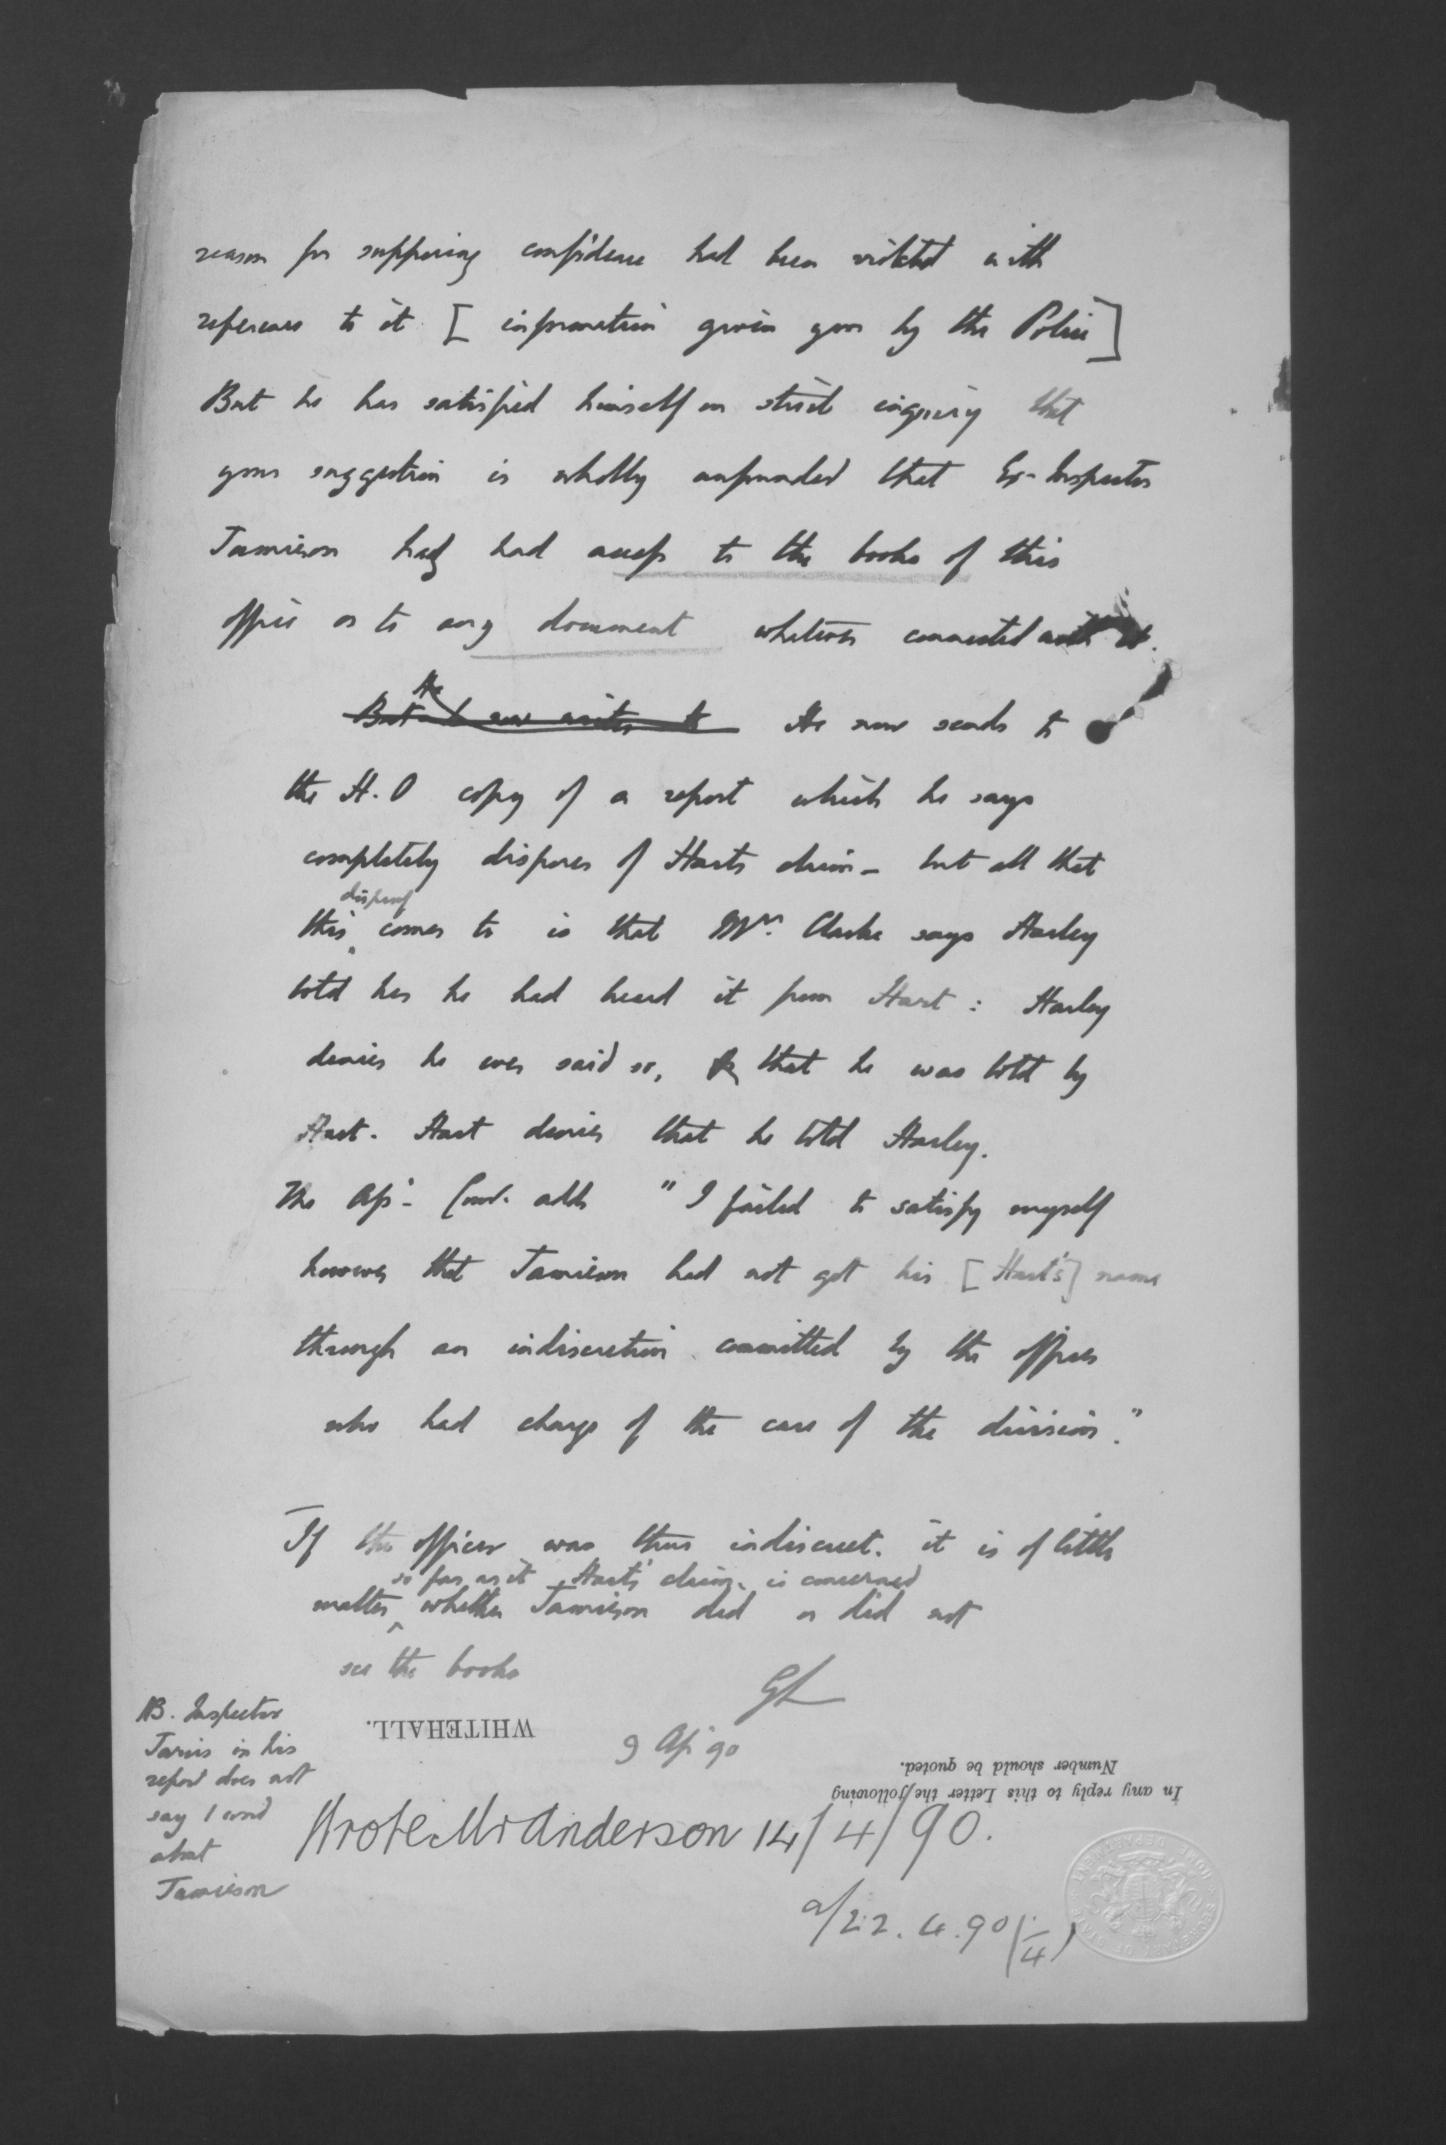 reason for supposing confidence had been violated with
reference to it [ information given you by the Police ]
But he has satisfied himself on strict inquiry that
your suggestion is wholly unfounded that Ex-Inspector
Jamieson had had access to the books of this
office or to any document whatever connected with it.
But he now writes to He now sends to
the H.O copy of a report which he says
completely disposes of Harts claim – but all that
disproof
this comes to is that Mrs. Clarke says Harley
told her he had heard it from Hart : Harley
denies he ever said so, or that he was told by
Hart. Hart denies that he told Harley.
The Asst. Comr. adds "I failed to satisfy myself
however that Jamieson had not got his [Hart's] name
through an indiscretion committed by the officer
who had charge of the case of the division."
If the officer was thus indiscreet. it is of little
so far as it Harts' claim is concerned
matter whether Jamieson did or did not
see the books
GL
9 Ap 90
WHITEHALL.
NB. Inspector
Jarvis in his
report does not
say 1 word
about
Jamieson
In any reply to this Letter the following
Number should be quoted.
Wrote Mr Anderson 14/4/90.
a/22.4.90